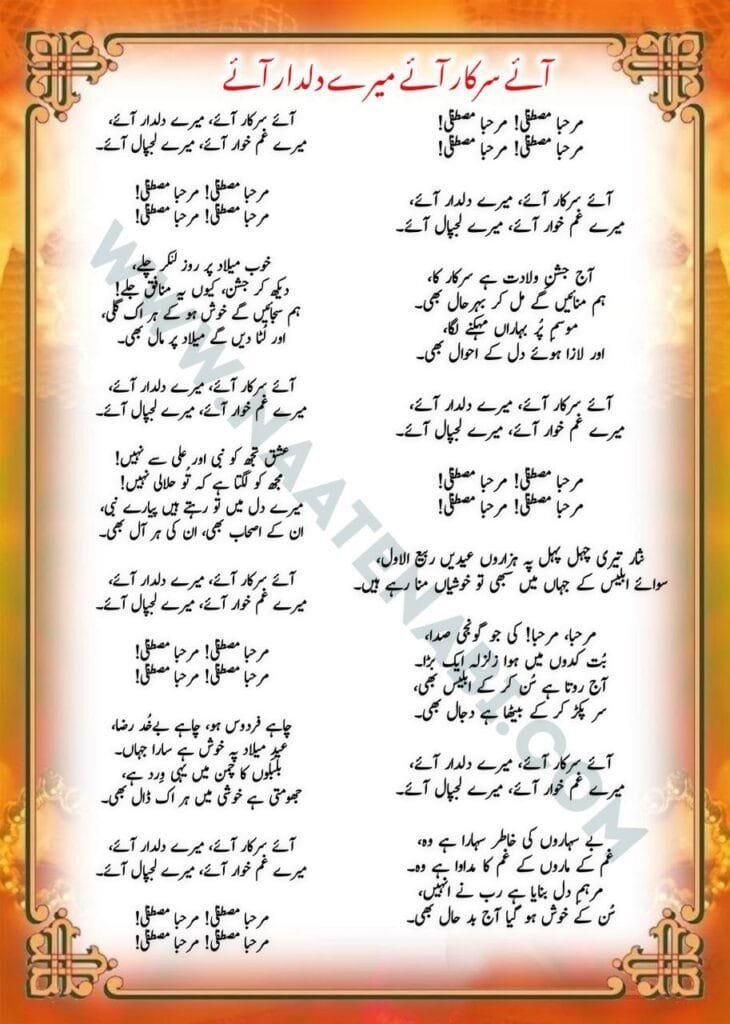 آئے سرکار آئے میرے دلدار آئے
مرحبا مصطفٰی! مرحبا مصطفٰی!
مرحبا مصطفٰی! مرحبا مصطفٰی!
آئے سرکار آئے، میرے دلدار آئے،
میرے غم خوار آئے، میرے لجپال آئے۔
آج جشنِ ولادت ہے سرکار کا،
ہم منائیں گے مل کر بہرحال بھی۔
موسمِ پُر بہاراں مہکنے لگا،
اور لازا ہوئے دل کے احوال بھی۔
آئے سرکار آئے، میرے دلدار آئے،
میرے غم خوار آئے، میرے لجپال آئے۔
مرحبا مصطفٰی! مرحبا مصطفٰی!
مرحبا مصطفٰی! مرحبا مصطفٰی!
نثار تیری چہل پہل پہ ہزاروں عیدیں ربیع الاول،
سوائے ابلیس کے جہاں میں سبھی تو خوشیاں منا رہے ہیں۔
مرحبا، مرحبا! کی جو گونجی صدا،
بُت کدوں میں ہوا زلزلہ ایک بڑا۔
آج روتا ہے سُن کر کے ابلیس بھی،
سر پکڑ کر کے بیٹھا ہے دجال بھی۔
آئے سرکار آئے، میرے دلدار آئے،
میرے غم خوار آئے، میرے لجپال آئے۔
بے سہاروں کی خاطر سہارا ہے وہ،
غم کے ماروں کے غم کا مداوا ہے وہ۔
مرہمِ دل بنایا ہے رب نے انہیں،
سُن کے خوش ہو گیا آج بد حال بھی۔
آئے سرکار آئے، میرے دلدار آئے،
میرے غم خوار آئے، میرے لجپال آئے۔
مرحبا مصطفٰی! مرحبا مصطفٰی!
مرحبا مصطفٰی! مرحبا مصطفٰی!
خوب میلاد پر روز لنگر چلے،
دیکھ کر جشن، کیوں یہ منافق جلے!
ہم سجائیں گے خوش ہو کے ہر اک گلی،
اور لُٹا دیں گے میلاد پر مال بھی۔
آئے سرکار آئے، میرے دلدار آئے،
میرے غم خوار آئے، میرے لجپال آئے۔
عشق تجھ کو نبی اور علی سے نہیں!
مجھ کو لگتا ہے کہ تُو حلالی نہیں!
میرے دل میں تو رہتے ہیں پیارے نبی،
ان کے اصحاب بھی، ان کی ہر آل بھی۔
آئے سرکار آئے، میرے دلدار آئے،
میرے غم خوار آئے، میرے لجپال آئے۔
مرحبا مصطفٰی! مرحبا مصطفٰی!
مرحبا مصطفٰی! مرحبا مصطفٰی!
چاہے فردوس ہو، چاہے بےخُد رضا،
عیدِ میلاد پہ خوش ہے سارا جہاں۔
بلبلوں کا چمن میں یہی وِرد ہے،
جھومتی ہے خوشی میں ہر اک ڈال بھی۔
آئے سرکار آئے، میرے دلدار آئے،
میرے غم خوار آئے، میرے لجپال آئے۔
مرحبا مصطفٰی! مرحبا مصطفٰی!
مرحبا مصطفٰی! مرحبا مصطفٰی!
WWW.NAATENABI.COM